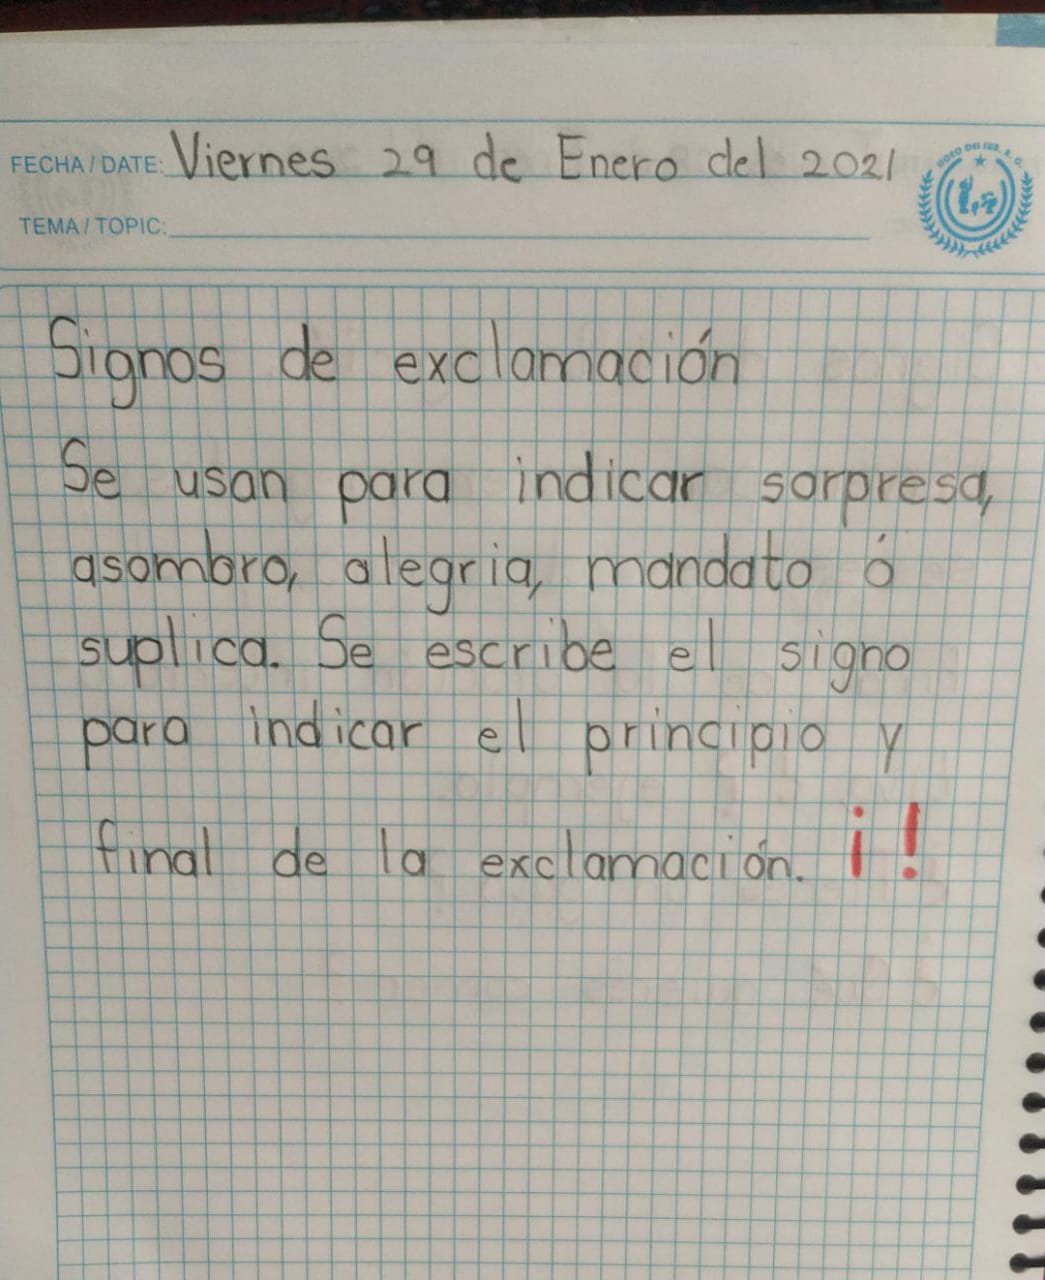 FECHA/DATE: Viernes 29 de Enero del 2021
TEMA/TOPIC:
Signos de exclamación
Se usan para indicar sorpresa,
asombro, alegria, mandato ó
suplica. Se escribe el signo
para indicar el principio y
final de la exclamación. ¡!